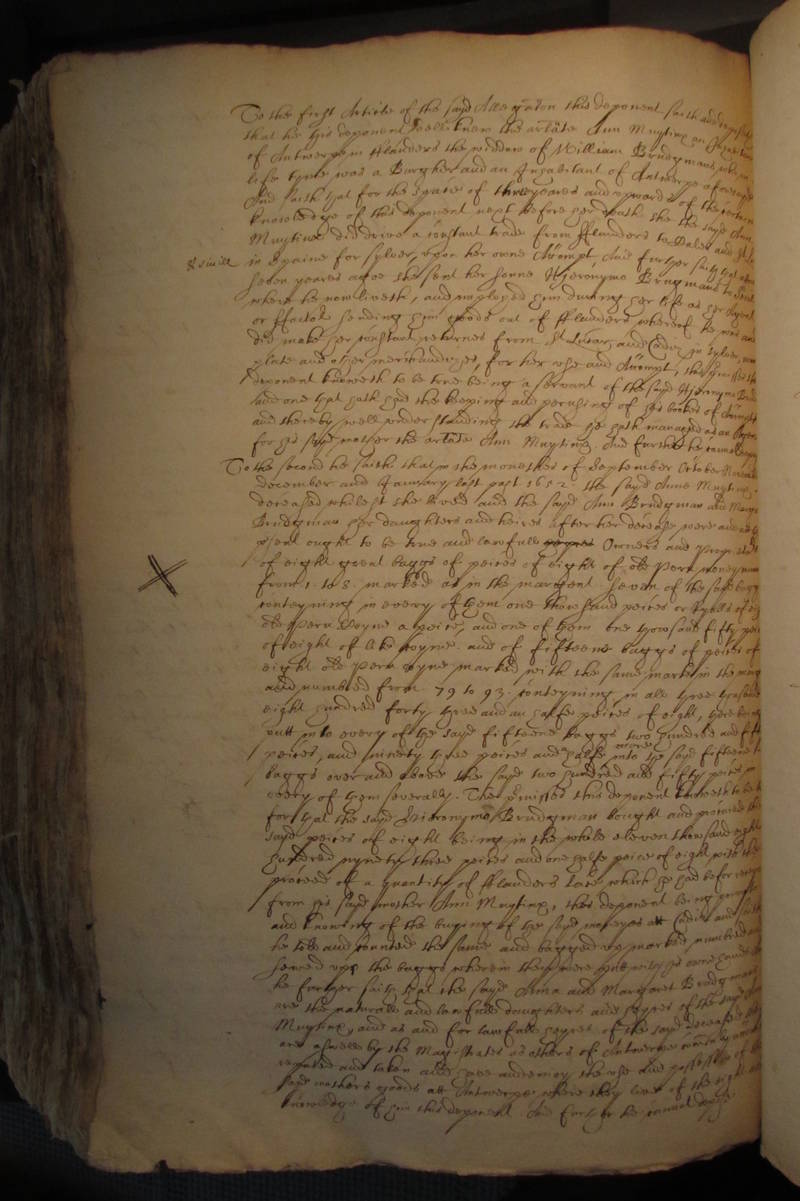 To the first Article of the sayd Allegaton this deponent saith and deposeth
that he this deponent well knew the arlate Ann Muytinx an Inhabitant
of Antwerpe in Flanders the widdow of William Brudgman, who in
life tyme was a Burgher and an Inhabitant of Antwerpe aforesayd
And saith that for the space of three yeares and upwards of the certaine
knowledge of this deponent next before her death she the sayd Ann
Muytinx did drive a constant trade from Flaunders to Cales and St
in Spaine for sylver, upon her owne Accompt, And further saith that
seven yeares agoe she sent her sonne Hieronymo Brugman to
where he now liveth, and imployed him during her life as her Agent
or Factor sending him goods out of Flaunders, whereof he was and
did make her constant returnes from St Lucar and Cadiz in sylver,
plate and other merchandizes, for her use and Accompt, the premisses this
deponent knoweth to be true being a servant of the sayd Hieronymo
and one that hath had the keeping and perusing of his bookes of Accompts
and thereby well understanding the trade he hath managed as an Agent
for his sayd mother the arlate Ann Muytinx. And further he cannot depose
To the second he saith that in the monethes of September October November
December and January last past 1652. the sayd Anne Muytinx
deceased whilest she lived and the sayd Ann Brudgman and Margaret
Brudgman her daughters and heires after her decease were and
ought to be true and lawfull Owners and Proprietors
of eight great baggs of peices of eight of old Peru money
from 1. to 8. marked as in the margent seven of the sayd baggs
conteyning in every of them one thousand peices or Ryalls of eight
old Peru Coyne a peice, and one of them one thousand fifty peices
of eight of like coyne. and of fifteene baggs of peices of
eight old Peru coyne marked with the same marke in the margent
and numbred from 79 to 93. conteyning in all three thousand
eight hundred forty three and an halfe peices of eight, there being
putt into every of the sayd fifteene baggs two hundred and fifty
peices, and ninety three peices and halfe more into the sayd fifteene
baggs over and above the sayd two hundred and fifty peices in
every of them severally. The premisses this deponent knoweth to be true
for that the sayd Hieronymo Brudgman bought and procured the
sayd peices of eight being in the whole eleven thousand eight
hundred nynety three peices and one halfe peice of eight with the
proceed of a quantity of Flanders Lace which he had before
from his sayd mother Ann Muytinx, this deponent being present
and knowing of the buying of the sayd moneyes att Cadiz and
he told and counted the same and bagged up marked numbred and
sewed upp the baggs wherein they were putt with his owne hands
he further saith that the sayd Anna and Margaret Brudgman
are the naturall and lawfull daughters and heyres of the sayd
Muytinx, and as and for lawfull heyres of the sayd deceased
are aswell by the Magistrates as others of Antwerpe commonly
reputed and taken and have and enjoy the use and possession of the
sayd mothers goods att Antwerpe where they live of the
knowledge of him this deponent. And further he cannot depose